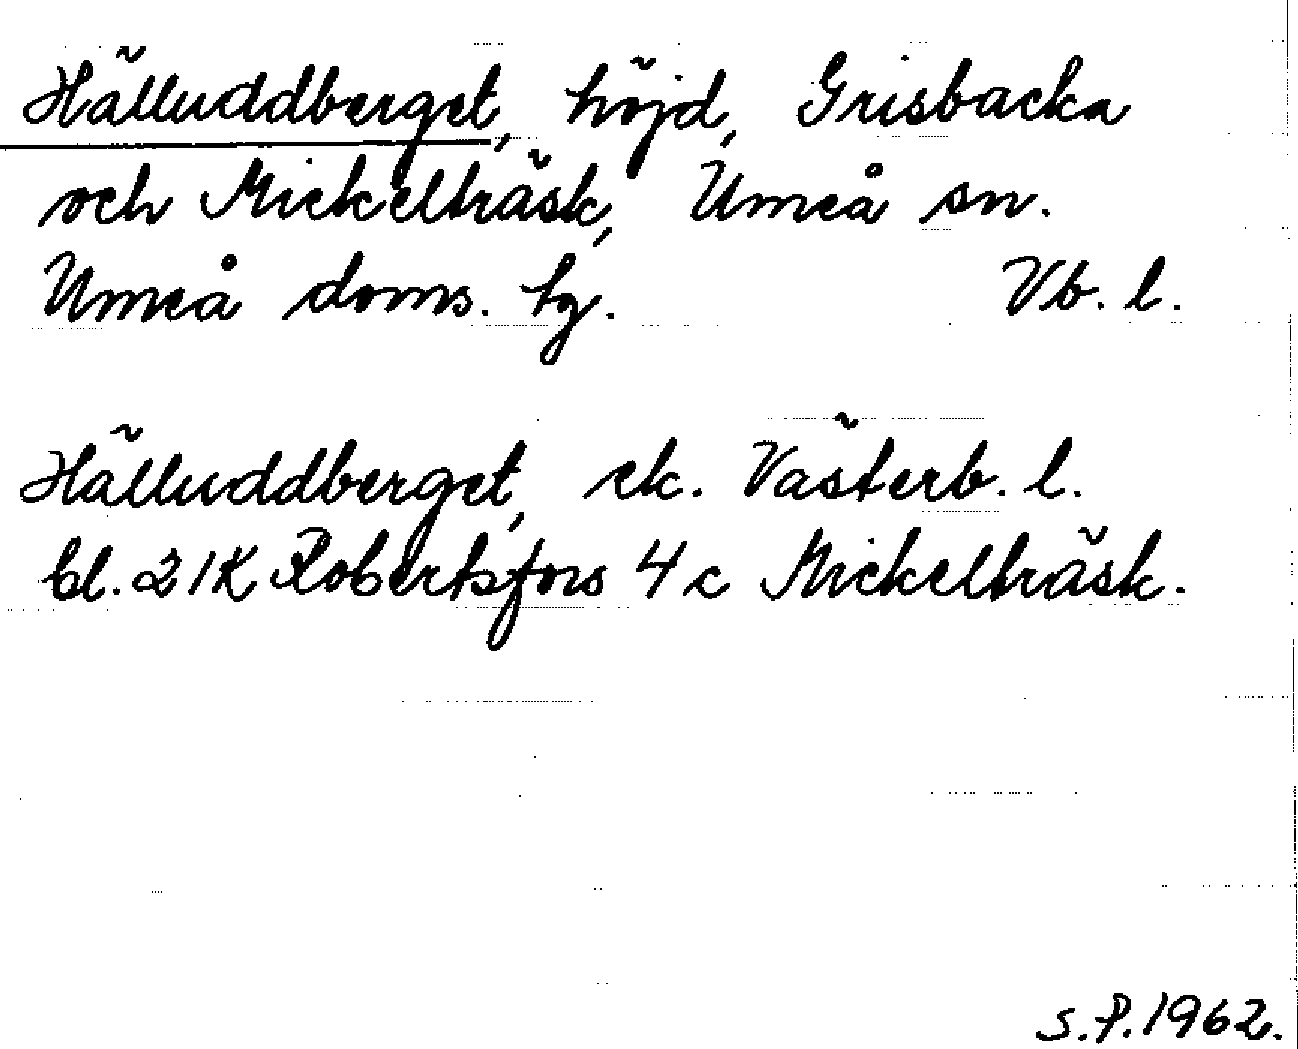 Hälluddberget, höjd, Grisbacka
och Mickelträsk, Umeå sn.
Umeå doms. tg. Vb. l.
Hälluddberget, ek. Västerb. l.
bl. 21K Robertsfors 4 c Mickelträsk.
S.P. 1962.